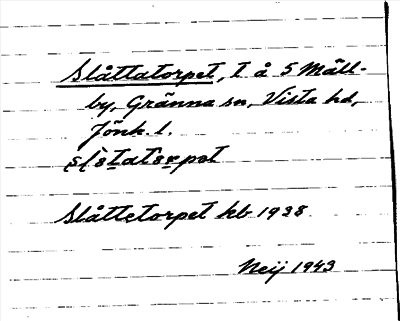 Slåttatorpet, t å S Mäll-
by, Gränna sn, Vista hd,
Jönk. l.
Slåttetorpet kb 1938
Neij 1943